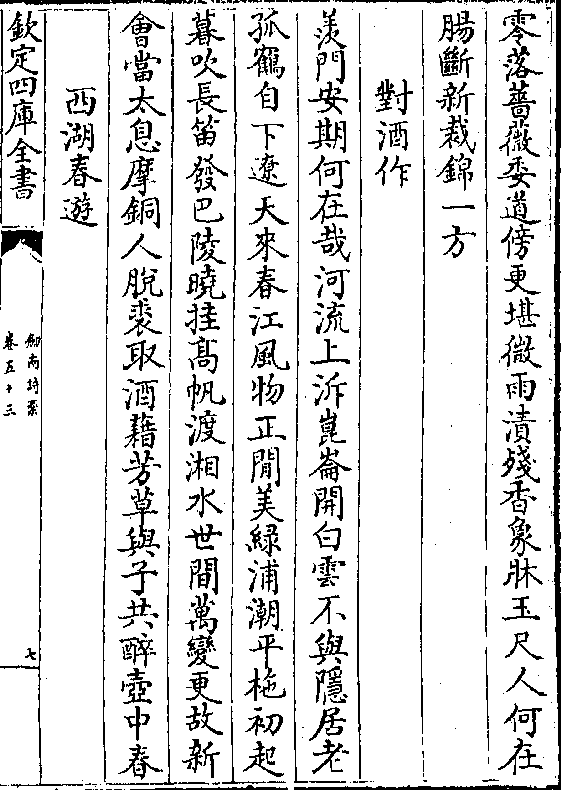 零落薔薇委道傍更堪微雨漬殘香象牀玉尺人何在
腸斷新裁錦一方
對酒作
羡門安期何在哉河流上泝崑崙開白雲不與隱居老
孤鶴自下遼天來春江風物正閒美綠浦潮平柂初起
暮吹長笛發巴陵曉挂髙帆渡湘水世間萬變更故新
會當太息摩銅人脫裘取酒藉芳草與子共醉壺中春
西湖春遊
欽定四庫全書
劔南詩藁
卷五十三
七